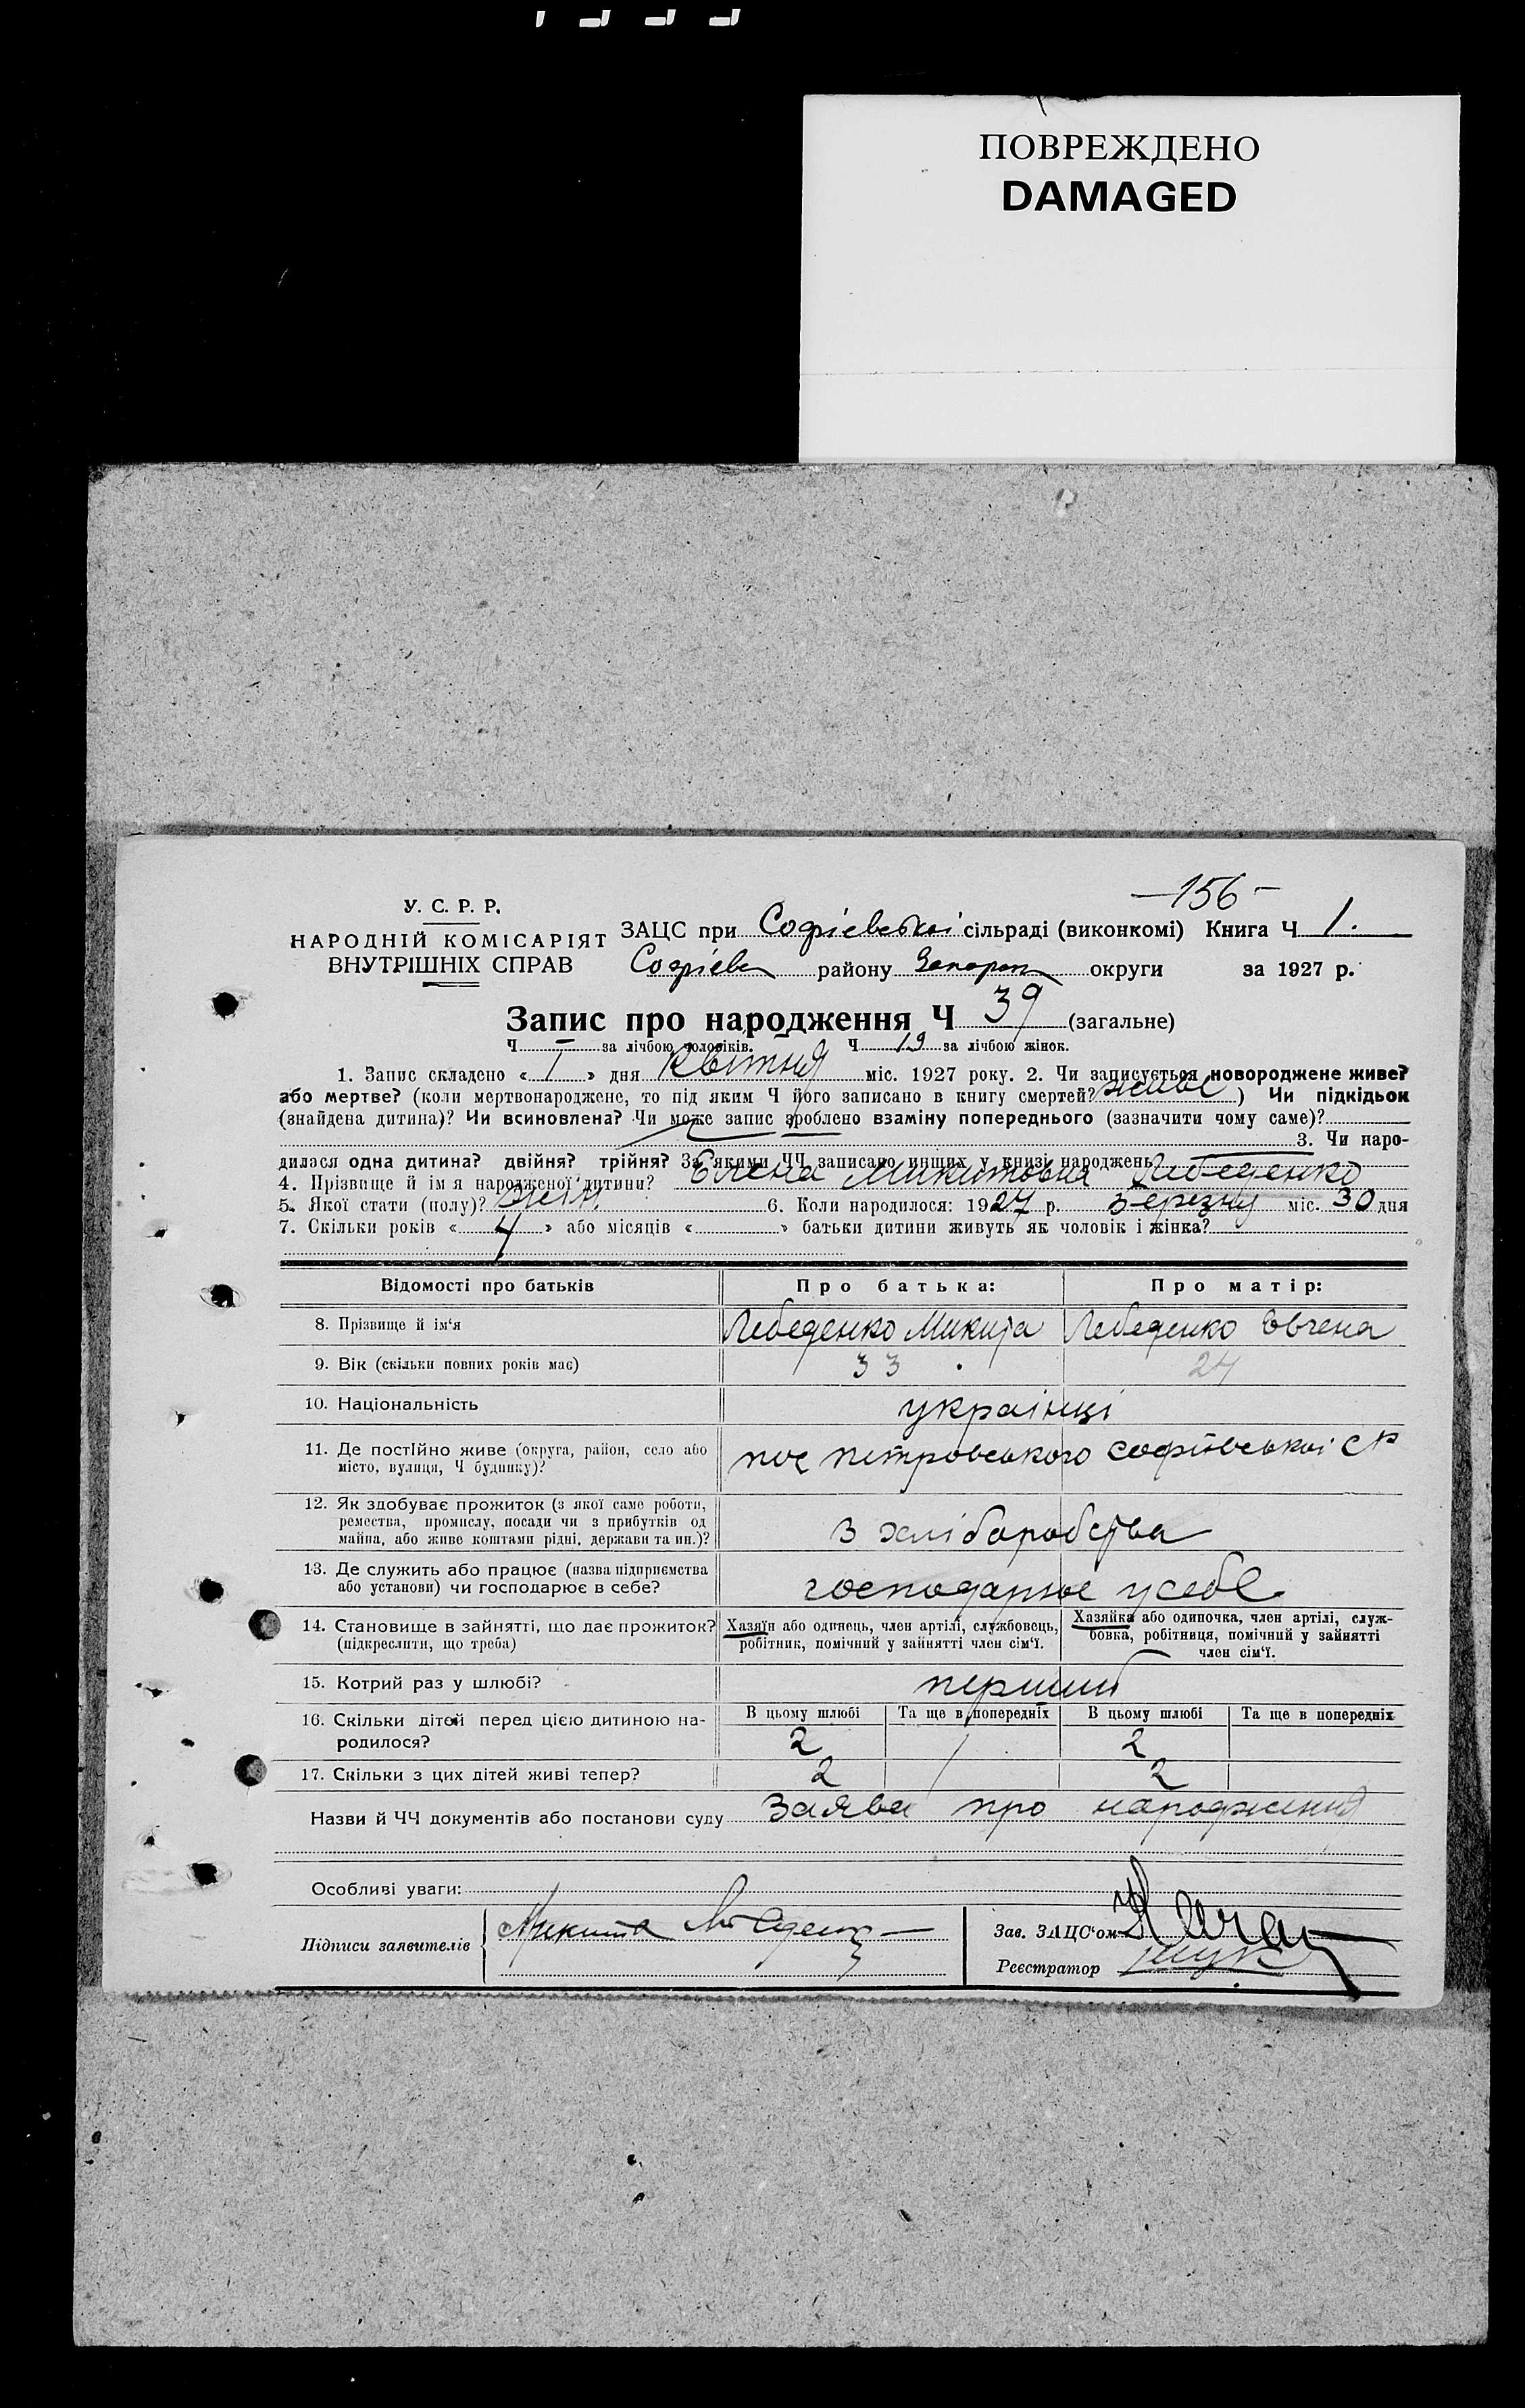 ПОВРЕЖДЕНО
DAMAGED
—156—
У. С. Р. Р.
НАРОДНІЙ КОМІСАРІЯТ
ВНУТРІШНІХ СПРАВ
ЗАЦС при Софієвської сільраді (виконкомі) Книга Ч 1.
Софієв району Запоріж округи за 1927 р.
Запис про народження Ч 39 (загальне)
Ч — за лічбою чоловіків. Ч 19 за лічбою жінок.
1. Запис складено « 1 » дня Квітня міс. 1927 року. 2. Чи записується новороджене живе?
або мертве? (коли мертвонароджене, то під яким Ч його записано в книгу смертей? живе ) Чи підкідьок
(знайдена дитина)? Чи всиновлена? Чи може запис зроблено взаміну попереднього (зазначити чому саме)?
3. Чи наро-
дилася одна дитина? двійня? трійня? За якими ЧЧ записано инших у книзі народжень
4. Прізвище й ім я народженої дитини? Елена Микитовна Лебеденко
5. Якої стати (полу)? жін. 6. Коли народилося: 1927 р. Березня міс. 30 дня
7. Скільки років « 4 » або місяців « » батьки дитини живуть як чоловік і жінка?
Відомості про батьків Про батька: Про матір:
8. Прізвище й ім'я Лебеденко Микита Лебеденко Євгена
9. Вік (скільки повних років має) 33 24
10. Національність українці
11. Де постійно живе (округа, район, село або
місто, вулиця, Ч будинку)? пос Петровського Софіївської СР
12. Як здобуває прожиток (з якої саме роботи,
ремества, промислу, посади чи з прибутків од
майна, або живе коштами рідні, держави та ин.)? З хліборобства
13. Де служить або працює (назва підприємства
або установи) чи господарює в себе? господарює усебе
14. Становище в зайнятті, що дає прожиток?
(підкреслити, що треба)
Хазяїн або одинець, член артілі, службовець,
робітник, помічний у зайнятті член сім'ї.
Хазяйка або одиночка, член артілі, служ-
бовка, робітниця, помічний у зайнятті
член сім'ї.
15. Котрий раз у шлюбі? перший
16. Скільки дітей перед цією дитиною на-
родилося?
В цьому шлюбі Та ще в попередніх В цьому шлюбі Та ще в попередніх
2 2
17. Скільки з цих дітей живі тепер? 2 2
Назви й ЧЧ документів або постанови суду Заява про народження
Особливі уваги:
Підписи заявителів Микита Лебеденко
Зав. ЗАЦС'ом
Реєстратор